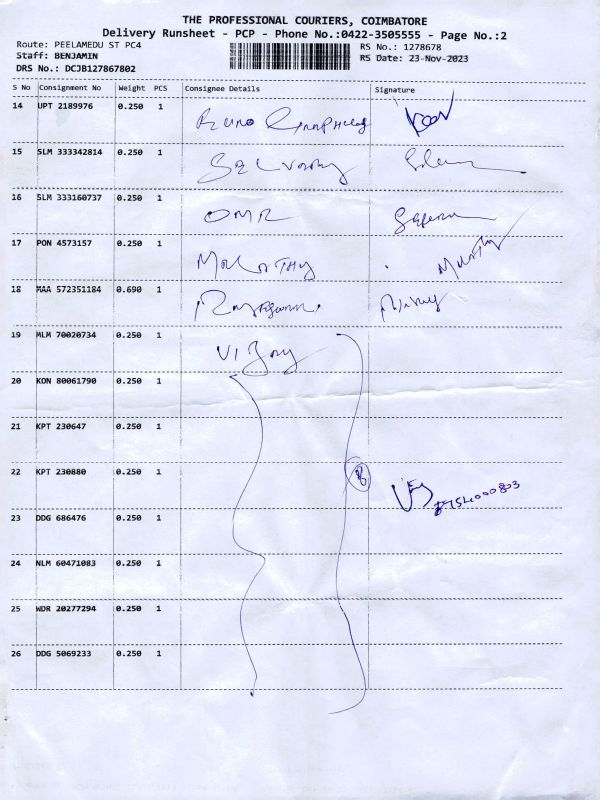 THE PROFESSIONAL COURIERS, COIMBATORE
Delivery Runsheet - PCP - Phone No.:0422-3505555 - Page No.:2
Route: PEELAMEDU ST PC4
RS No.: 1278678
Staff: BENJAMIN
RS Date: 23-Nov-2023
DRS No.: DCJB127867802
S No Consignment No Weight PCS Consignee Details Signature
14 UPT 2189976 0.250 1
15 SLM 333342814 0.250 1
16 SLM 333160737 0.250 1 OMR
17 PON 4573157 0.250 1
18 MAA 572351184 0.690 1
19 MLM 70020734 0.250 1
20 KON 80061790 0.250 1
21 KPT 230647 0.250 1
22 KPT 230880 0.250 1
23 DDG 686476 0.250 1
24 NLM 60471083 0.250 1
25 WDR 20277294 0.250 1
26 DDG 5069233 0.250 1